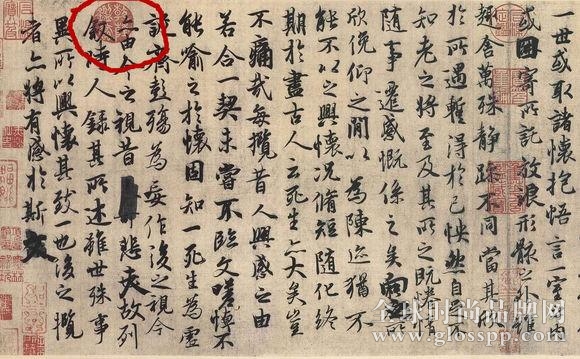 一世或取諸懷抱悟言一室之內
或因寄所託放浪形骸之外雖
趣舍萬殊靜躁不同當其欣
於所遇暫得於己怏然自足不
知老之將至及其所之既惓情
隨事遷感慨係之矣向之所
欣俛仰之間以為陳迹猶不
能不以之興懷況脩短隨化終
期於盡古人云死生亦大矣豈
不痛哉每攬昔人興感之由
若合一契未嘗不臨文嗟悼不
能喻之於懷固知一死生為虛
誕齊彭殤為妄作後之視今
亦由今之視昔悲夫故列
敘時人錄其所述雖世殊事
異所以興懷其致一也後之攬
者亦將有感於斯文
全球时尚品牌网
www.chinasspp.com